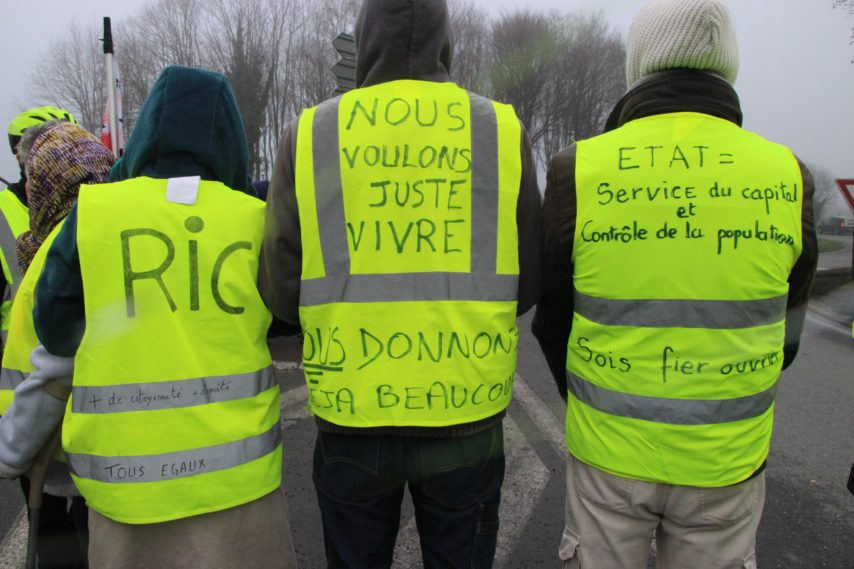 Ric
+ de citoyenneté + dignité
TOUS EGALUX
NOUS
VOULONS
JUSTE
VIVRE
DONNONS
BEAUCOUP
ETAT =
Service du capital
et
Contrôle de la populations
Sois fier ouvrier